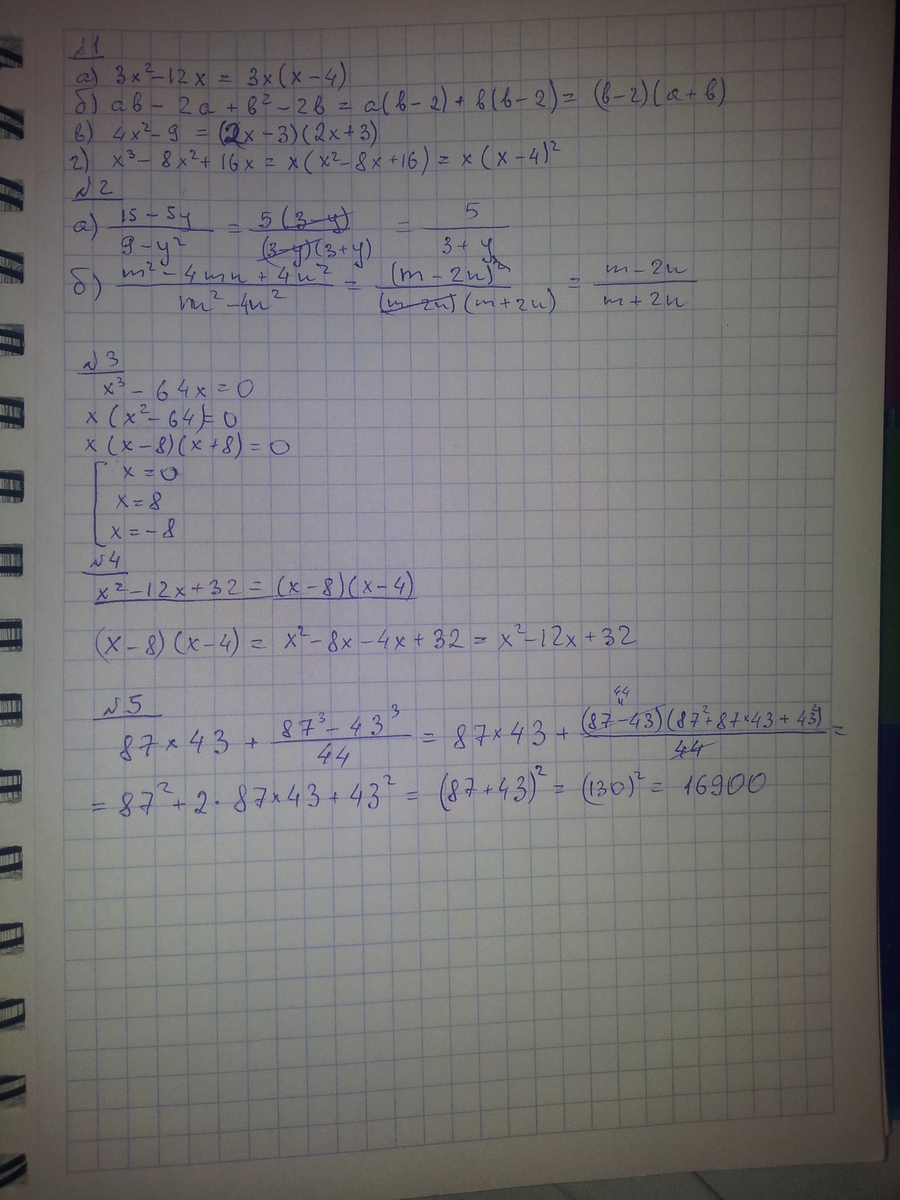 №1
а) 3x² - 12x = 3x(x - 4)
б) ab - 2a + b² - 2b = a(b - 2) + b(b - 2) = (b - 2)(a + b)
в) 4x² - 9 = (2x - 3)(2x + 3)
г) x³ - 8x² + 16x = x(x² - 8x + 16) = x(x - 4)²
№2
а) (15 - 5y)/(9 - y²) = 5(3 - y)/((3 - y)(3 + y)) = 5/(3 + y)
б) (m² - 4mn + 4n²)/(m² - 4n²) = (m - 2n)²/((m - 2n)(m + 2n)) = (m - 2n)/(m + 2n)
№3
x³ - 64x = 0
x(x² - 64) = 0
x(x - 8)(x + 8) = 0
[ x = 0
x = 8
x = -8
№4
x² - 12x + 32 = (x - 8)(x - 4)
(x - 8)(x - 4) = x² - 8x - 4x + 32 = x² - 12x + 32
№5
87 × 43 + (87³ - 43³)/44 = 87 × 43 + (87 - 43)(87² + 87 × 43 + 43²)/44 =
44
= 87² + 2 · 87 × 43 + 43² = (87 + 43)² = (130)² = 16900